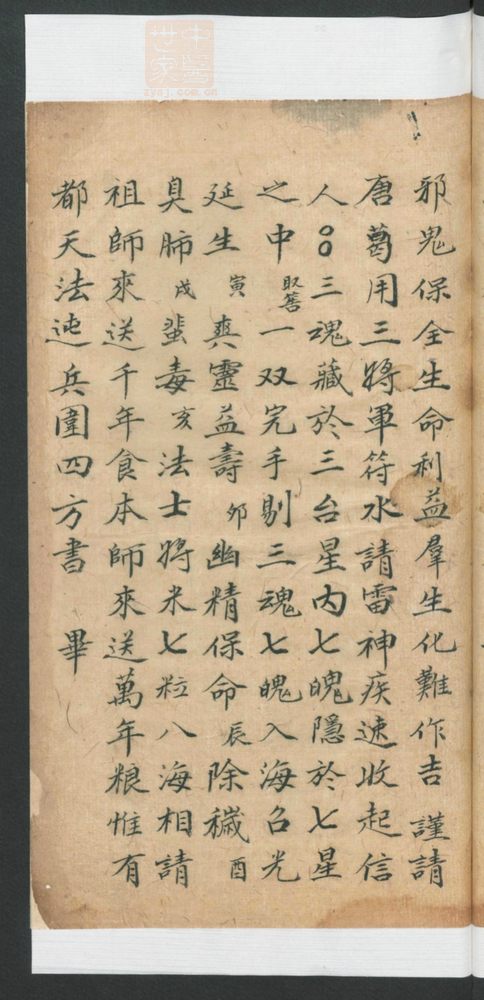 邪鬼保全生命利益羣生化難作吉謹請
唐葛用三將軍符水請雷神疾速收起信
人〇〇三魂藏於三台星內七魄隱於七星
之中取善一双完手剔三魂七魄入海召光
延生寅爽靈益壽夘幽精保命辰除穢酉
臭肺戌蜚毒亥法士將米七粒八海相請
祖師來送千年食本師來送萬年粮惟有
都天法迍兵圍四方書畢
中醫世家
zysj.com.cn